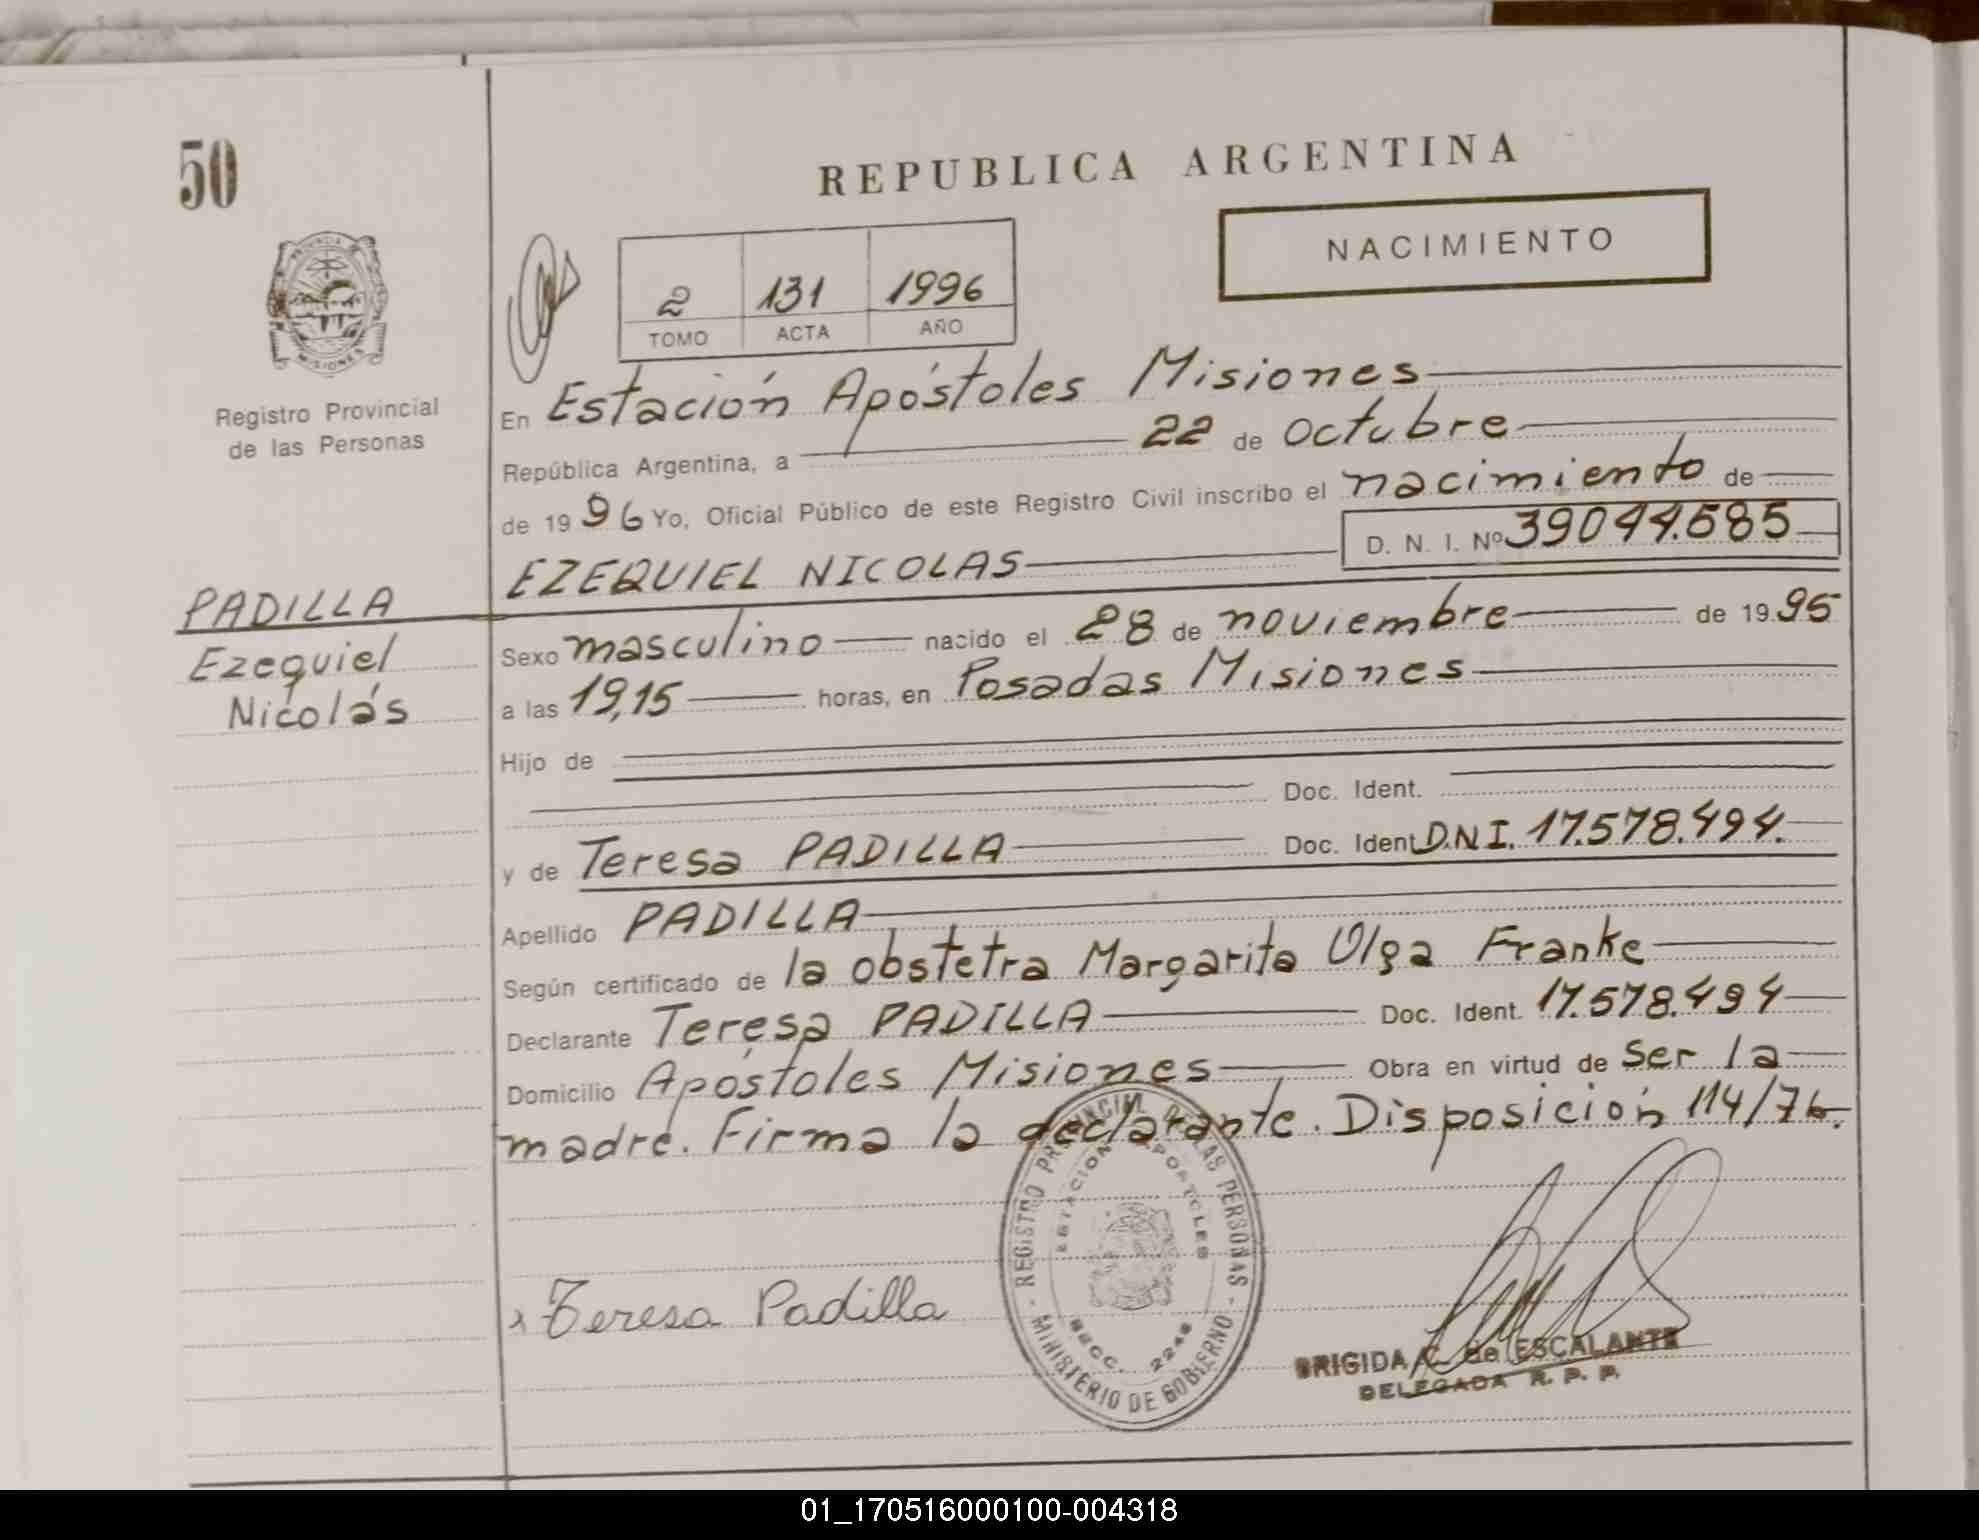 50
REPUBLICA ARGENTINA
NACIMIENTO
2 131 1996
TOMO ACTA AÑO
PROVINCIA DE MISIONES
Registro Provincial
de las Personas
En Estación Apóstoles Misiones
República Argentina, a 22 de octubre
de 1996 Yo, Oficial Público de este Registro Civil inscribo el nacimiento de
EZEQUIEL NICOLAS D. N. I. Nº 39044.585
PADILLA
Ezequiel
Nicolás
Sexo masculino nacido el 28 de noviembre de 1995
a las 19,15 horas, en Posadas Misiones
Hijo de
Doc. Ident.
y de Teresa PADILLA Doc. Ident D.N.I. 17.578.494.
Apellido PADILLA
Según certificado de la obstetra Margarita Olga Franke
Declarante Teresa PADILLA Doc. Ident. 17.578.494
Domicilio Apóstoles Misiones Obra en virtud de ser la
madre. Firma la declarante. Disposición 114/76.
REGISTRO PROVINCIAL DE LAS PERSONAS - MINISTERIO DE GOBIERNO -
ESTACION APOSTOLES
SECC. 2248
Teresa Padilla
BRIGIDA C. de ESCALANTE
DELEGADA R. P. P.
01_170516000100-004318